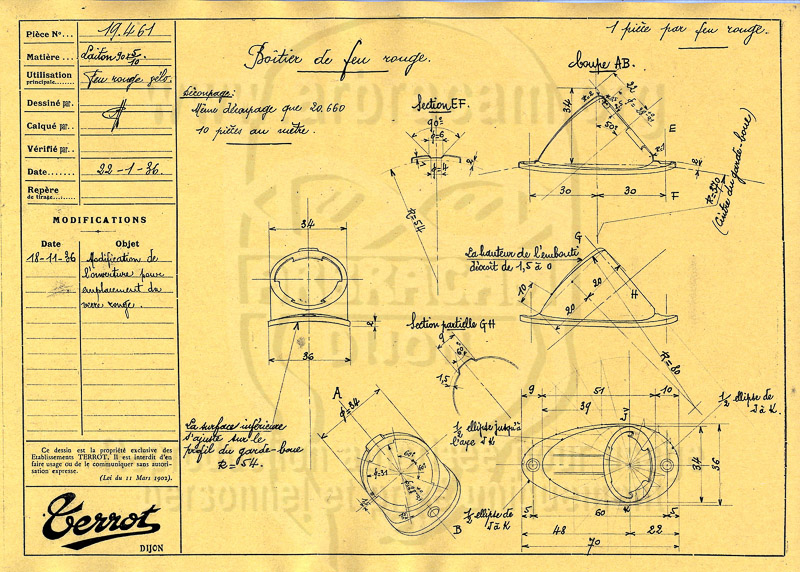 Pièce N°... 19.461
Matière... Laiton 90 × 5/10
Utilisation principale... Feu rouge vélo.
Dessiné par.
Calqué par..
Vérifié par..
Date....... 22-1-36.
Repère de tirage.......
MODIFICATIONS
Date Objet
18-11-36 Modification de
l'ouverture pour
emplacement du
verre rouge.
Ce dessin est la propriété exclusive des
Etablissements TERROT, il est interdit d'en
faire usage ou de le communiquer sans autori-
sation expresse.
(Loi du 11 Mars 1902).
Terrot
DIJON
Boîtier de feu rouge.
1 pièce par feu rouge.
Découpage:
Même découpage que 20.660
10 pièces au mètre.
Section EF.
90°
φ=6
φ=4
R=54
Coupe AB.
34
22
50°
E
F
30 30
R=340
(Cintre du garde-boue)
34
2
36
1
La surface inférieure
s'ajuste sur le
profil du garde-boue
R=54.
La hauteur de l'embouti
décroit de 1,5 à 0
G
H
10
20
20
R=80
Section partielle GH
9
1,5
A
φ=34
φ=31
60°
B
1/2 ellipse jusqu'à
l'axe JK
1/2 ellipse de
J à K
1/2 ellipse de
J à K
9 51 10
39
J
K
34
36
5 60 5
48 22
70